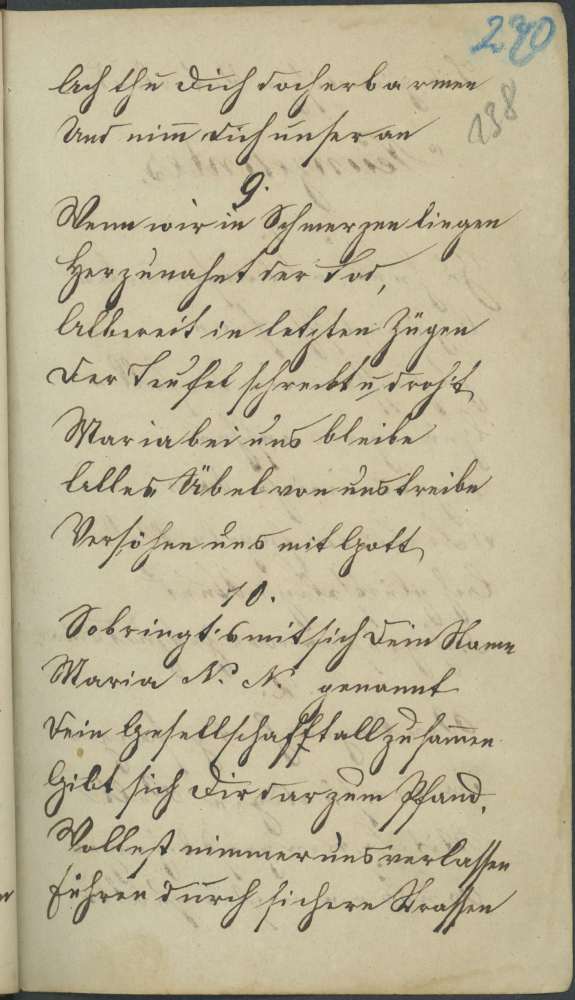 270
198
Ach thu Dich doch erbarmen
Und nim̄ Dich unser an
9.
Wenn wir in Schmerzen liegen
Herzunahnt der Tod,
Albereit in letzten Zügen
Der Teufel schreckt u. droh't
Maria bei uns bleibe
Alles Übel von uns treibe
Versöhne uns mit Gott
10.
So bringt's mit sich Dein Name
Maria N. N. genannt
Dein Gesellschafft all zusam̄en
Gibt sich Dir dar zum Pfand,
Wollest nimmer uns verlassen
Führen durch sichere Strassen